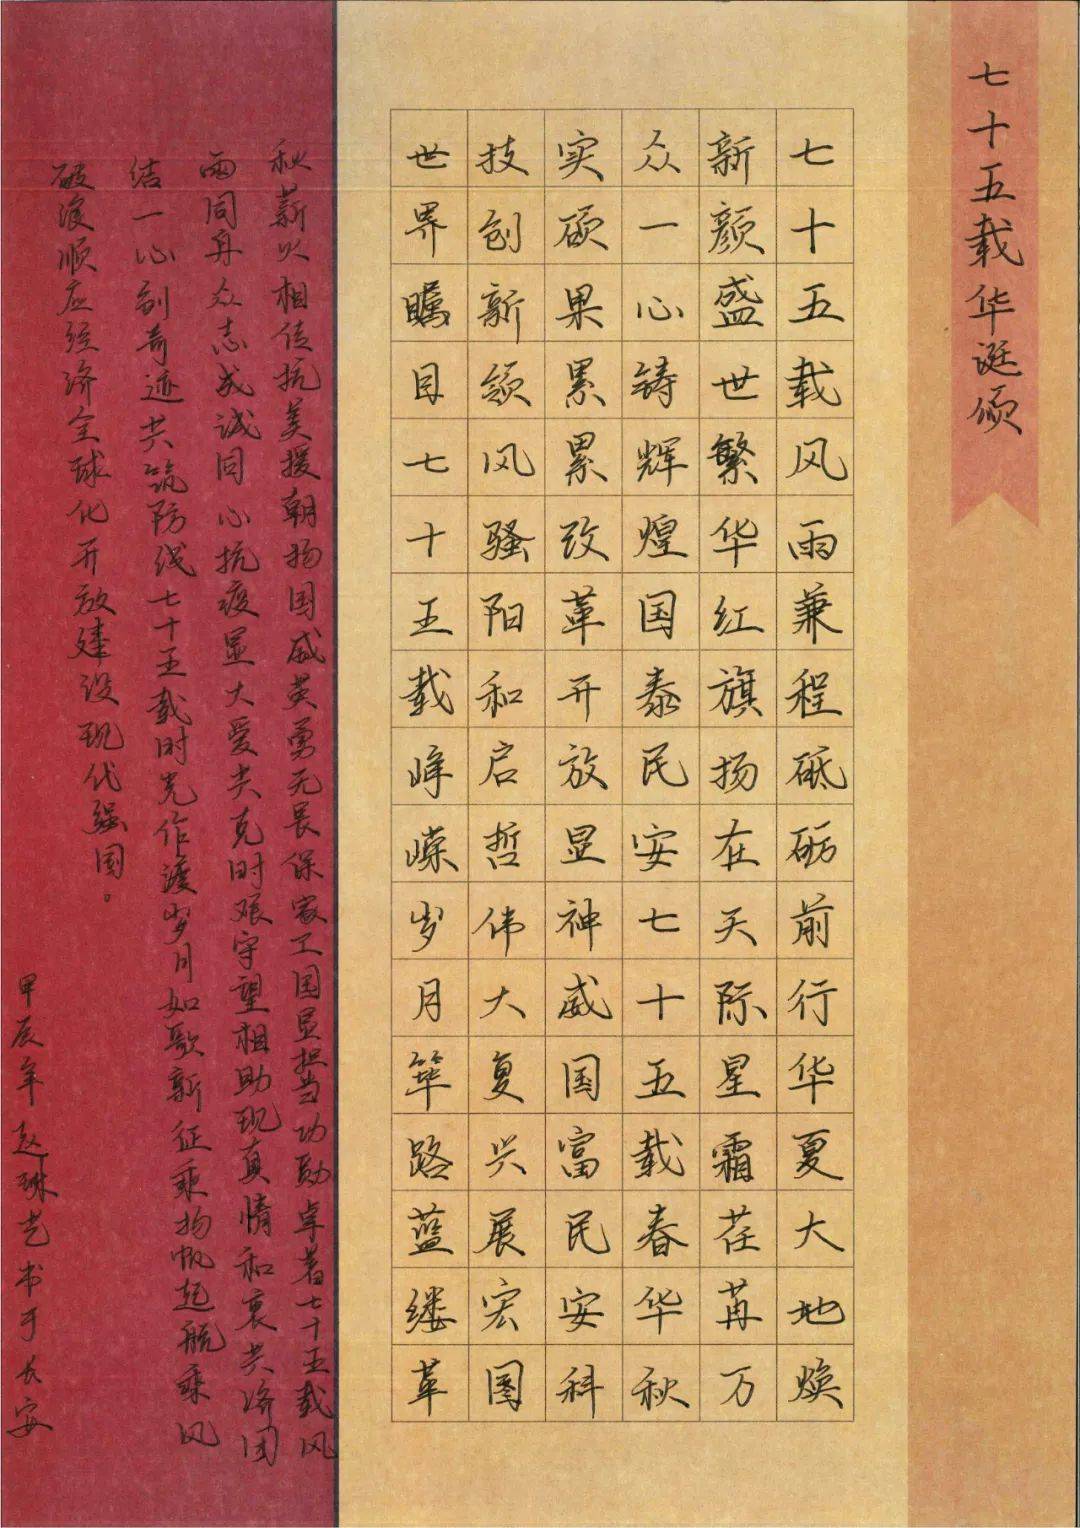 七十五载华诞颂
七十五载风雨兼程砥砺前行华夏大地焕
新颜盛世繁华红旗扬在天际星霜荏苒万
众一心铸辉煌国泰民安七十五载春华秋
实硕果累累改革开放显神威国富民安科
技创新领风骚阳和启哲伟大复兴展宏图
世界瞩目七十五载峥嵘岁月筚路蓝缕革
秋薪火相传抗美援朝扬国威英勇无畏保家卫国显担当功勋卓著七十五载风
雨同舟众志成诚同心抗疫显大爱共克时艰守望相助现真情和衷共济团
结一心创奇迹共筑防线七十五载时光作渡岁月如歌新征乘扬帆起航乘风
破浪顺应经济全球化开放建设现代强国。
甲辰年赵琳艺书于长安